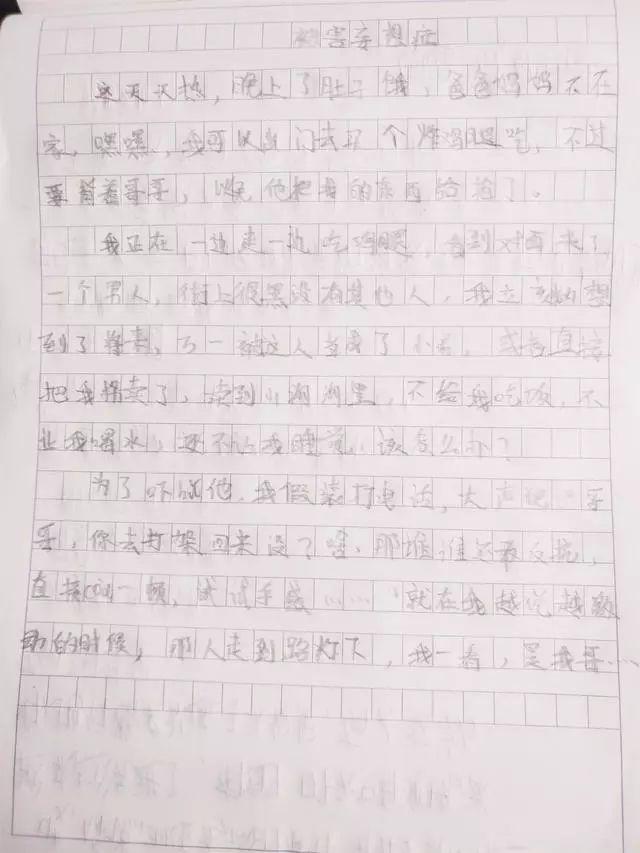 被害妄想症
这天天热，晚上了肚子饿，爸爸妈妈不在
家，嘿嘿，我可以出门去买个炸鸡腿吃，不过
要背着哥哥，以免他把我的东西给抢了。
我正在一边走一边吃鸡腿，看到对面来了
一个男人，街上很黑没有其他人，我立刻想
到了拐卖，万一被这人当成了小，或者直接
把我拐卖了，卖到小湖湖里，不给我吃饭，不
让我喝水，还不让我睡觉，该怎么办？
为了吓唬他，我假装打电话，大声说：哥
哥，你去打架回来没了啥，那堆谁最反抗，
直接一顿，试试手感……就在我越说越激
动的时候，那人走到路灯下，我一看，是我哥…